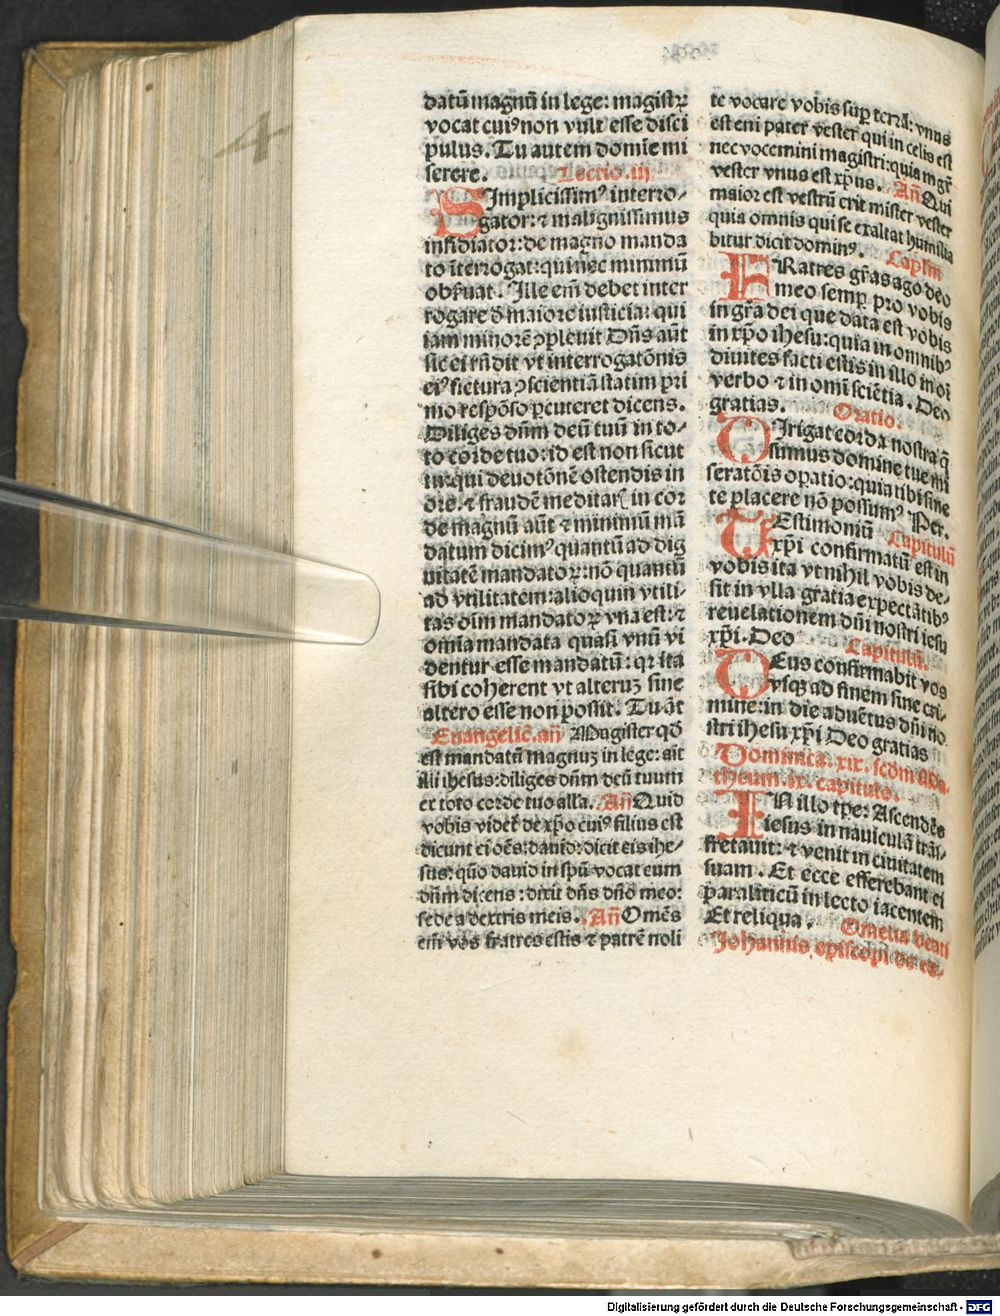 datū magnū in lege: magistꝝ
vocat cuiꝰ non vult esse disci
pulus. Tu autem domīe mi
serere. Lectio.iij
SImplicissimꝰ interro-
gator: ⁊ malignissimus
insidiator: de magno manda
to īterrogat: qui nec minimū
obẜuat. Ille em̄ debet inter
rogare ð maiore iusticia: qui
iam minorē ꝯpleuit Dn̄s aūt
sic ei rn̄dit vt interrogatōnis
eiꝰ fictura ꝯscientiā statim pri
mo respōso ꝑcuteret dicens.
Diliges dn̄m deū tuū in to-
to corde tuo: id est non sicut
tu: qui deuotōnē ostendis in
ore. ⁊ fraudē meditaꝛ in cor
de magnū aūt ⁊ minimū mā
datum dicimꝰ quantū ad dig
nitatē mandatoꝝ: nō quantū
ad vtilitatem: alioquin vtili-
tas oīm mandatoꝝ vna est: ⁊
omīa mandata quasi vnū vi
dentur esse mandatū: qꝛ ita
sibi coherent vt alteruꝫ sine
altero esse non possit. Tu āt
Euangelic̄. an̄ Magister qð
est mandatū magnuꝫ in lege: ait
illi ihesus: diliges dn̄m deū tuum
ex toto corde tuo alla. An̄ Quid
vobis videt̄ de xp̄o cuiꝰ filius est
dicunt ei oēs: dauid: dicit eis ihe-
sus: quō dauid in sp̄u vocat eum
dn̄m dicens: dixit dn̄s dn̄o meo:
sede a dextris meis. An̄ Omēs
em̄ vos fratres estis ⁊ patrē noli
te vocare vobis suꝑ terrā: vnus
est eni pater vester qui in celis est
nec vocemini magistri: quia mgr̄
vester vnus est xp̄us. An̄ Qui
maior est vestrū erit mister vester
quia omnis qui se exaltat humilia
bitur dicit dominꝰ. Caplm
FRatres gr̄as ago deo
meo semꝑ pro vobis
in gr̄a dei que data est vobis
in xp̄o ihesu: quia in omnibꝰ
diuites facti estis in illo in oī
verbo ⁊ in omī sciētia. Deo
gratias. Oratio.
DIrigat corda nostra q̄
sumus domine tue mi
seratōis oꝑatio: quia tibi sine
te placere nō possumꝰ Per.
TEstimoniū Capitulū
xp̄i confirmatū est in
vobis ita vt nihil vobis de-
sit in vlla gratia expectātibꝰ
reuelationem dn̄i nostri iesu
xp̄i. Deo Capitulū.
DEus confirmabit vos
vsqꝫ ad finem sine cri-
mine: in die aduētus dn̄i no
stri ihesu xp̄i Deo gratias
Dominica. xix. scdm Ma-
theum. ix. capitulo.
IN illo tꝑe: Ascendēs
iesus in nauiculā trās-
fretauit: ⁊ venit in ciuitatem
suam. Et ecce efferebant ei
paraliticū in lecto iacentem
Et reliqua. Omelia beati
Johannis episcopi de ex-
Digitalisierung gefördert durch die Deutsche Forschungsgemeinschaft - DFG